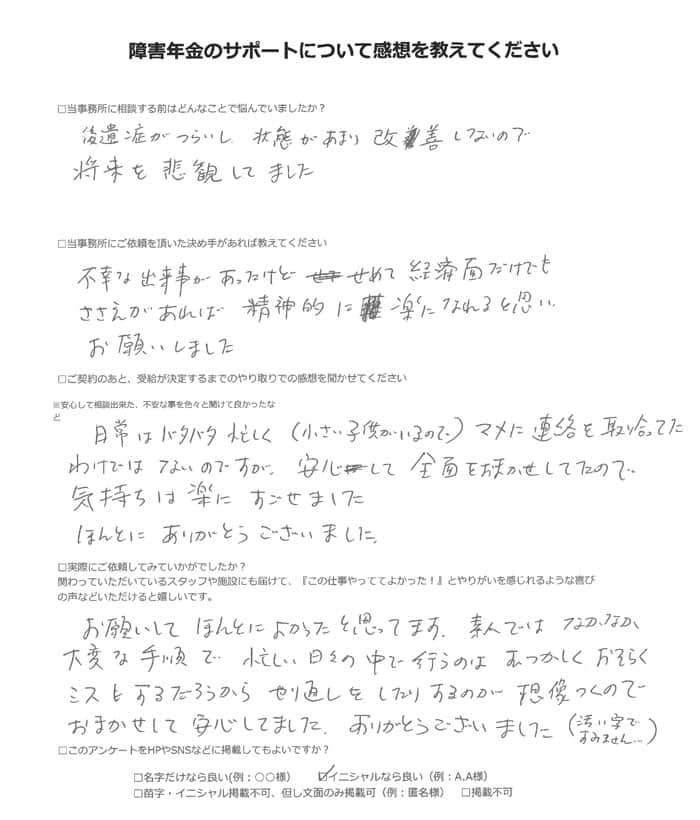 障害年金のサポートについて感想を教えてください
□当事務所に相談する前はどんなことで悩んでいましたか？
後遺症がつらいし、状態があまり改善しないので
将来を悲観してました
□当事務所にご依頼を頂いた決め手があれば教えてください
不幸な出来事があったけど せめて経済面だけでも
ささえがあれば 精神的に楽になれると思い、
お願いしました
□ご契約のあと、受給が決定するまでのやり取りでの感想を聞かせてください
※安心して相談出来た、不安な事を色々と聞けて良かったな
ど
日常はバタバタ忙しく（小さい子供がいるので）マメに連絡を取り合ってた
わけではないのですが、安心して全面をまかせしてたので
気持ちは楽にすごせました
ほんとにありがとうございました。
□実際にご依頼してみていかがでしたか？
関わっていただいているスタッフや施設にも届けて、『この仕事やっててよかった！』とやりがいを感じれるような喜び
の声などいただけると嬉しいです。
お願いしてほんとによかったと思ってます。素人ではなかなか
大変な手順で忙しい日々の中で行うのはむつかしくおそらく
ミスもするだろうからやり返しをしたりするのが想像つくので
おまかせして安心してました。ありがとうございました（汚い字で
すみません…）
□このアンケートをHPやSNSなどに掲載してもよいですか？
□名字だけなら良い(例：○○様) ☑イニシャルなら良い（例：A.A様）
□苗字・イニシャル掲載不可、但し文面のみ掲載可（例：匿名様） □掲載不可